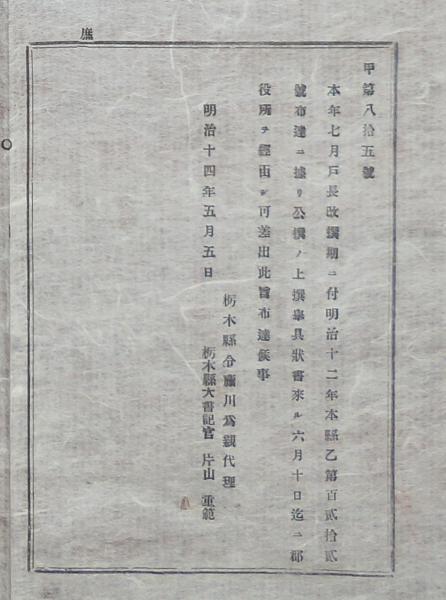 庶
甲第八拾五號
本年七月戸長改撰期ニ付明治十二年本縣乙第百貳拾貳
號布達ニ據リ公撰ノ上撰擧具狀書來ル六月十日迄ニ郡
役所ヲ經由シ可差出此旨布達候事
明治十四年五月五日
栃木縣令藤川爲親代理
栃木縣大書記官 片山重範